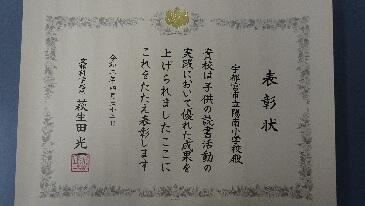 表彰状
宇都宮市立陽南小学校殿
貴校は子供の読書活動の
実践において優れた成果を
上げられましたここに
これをたたえ表彰します
令和二年四月二十三日
文部科学大臣 萩生田光一